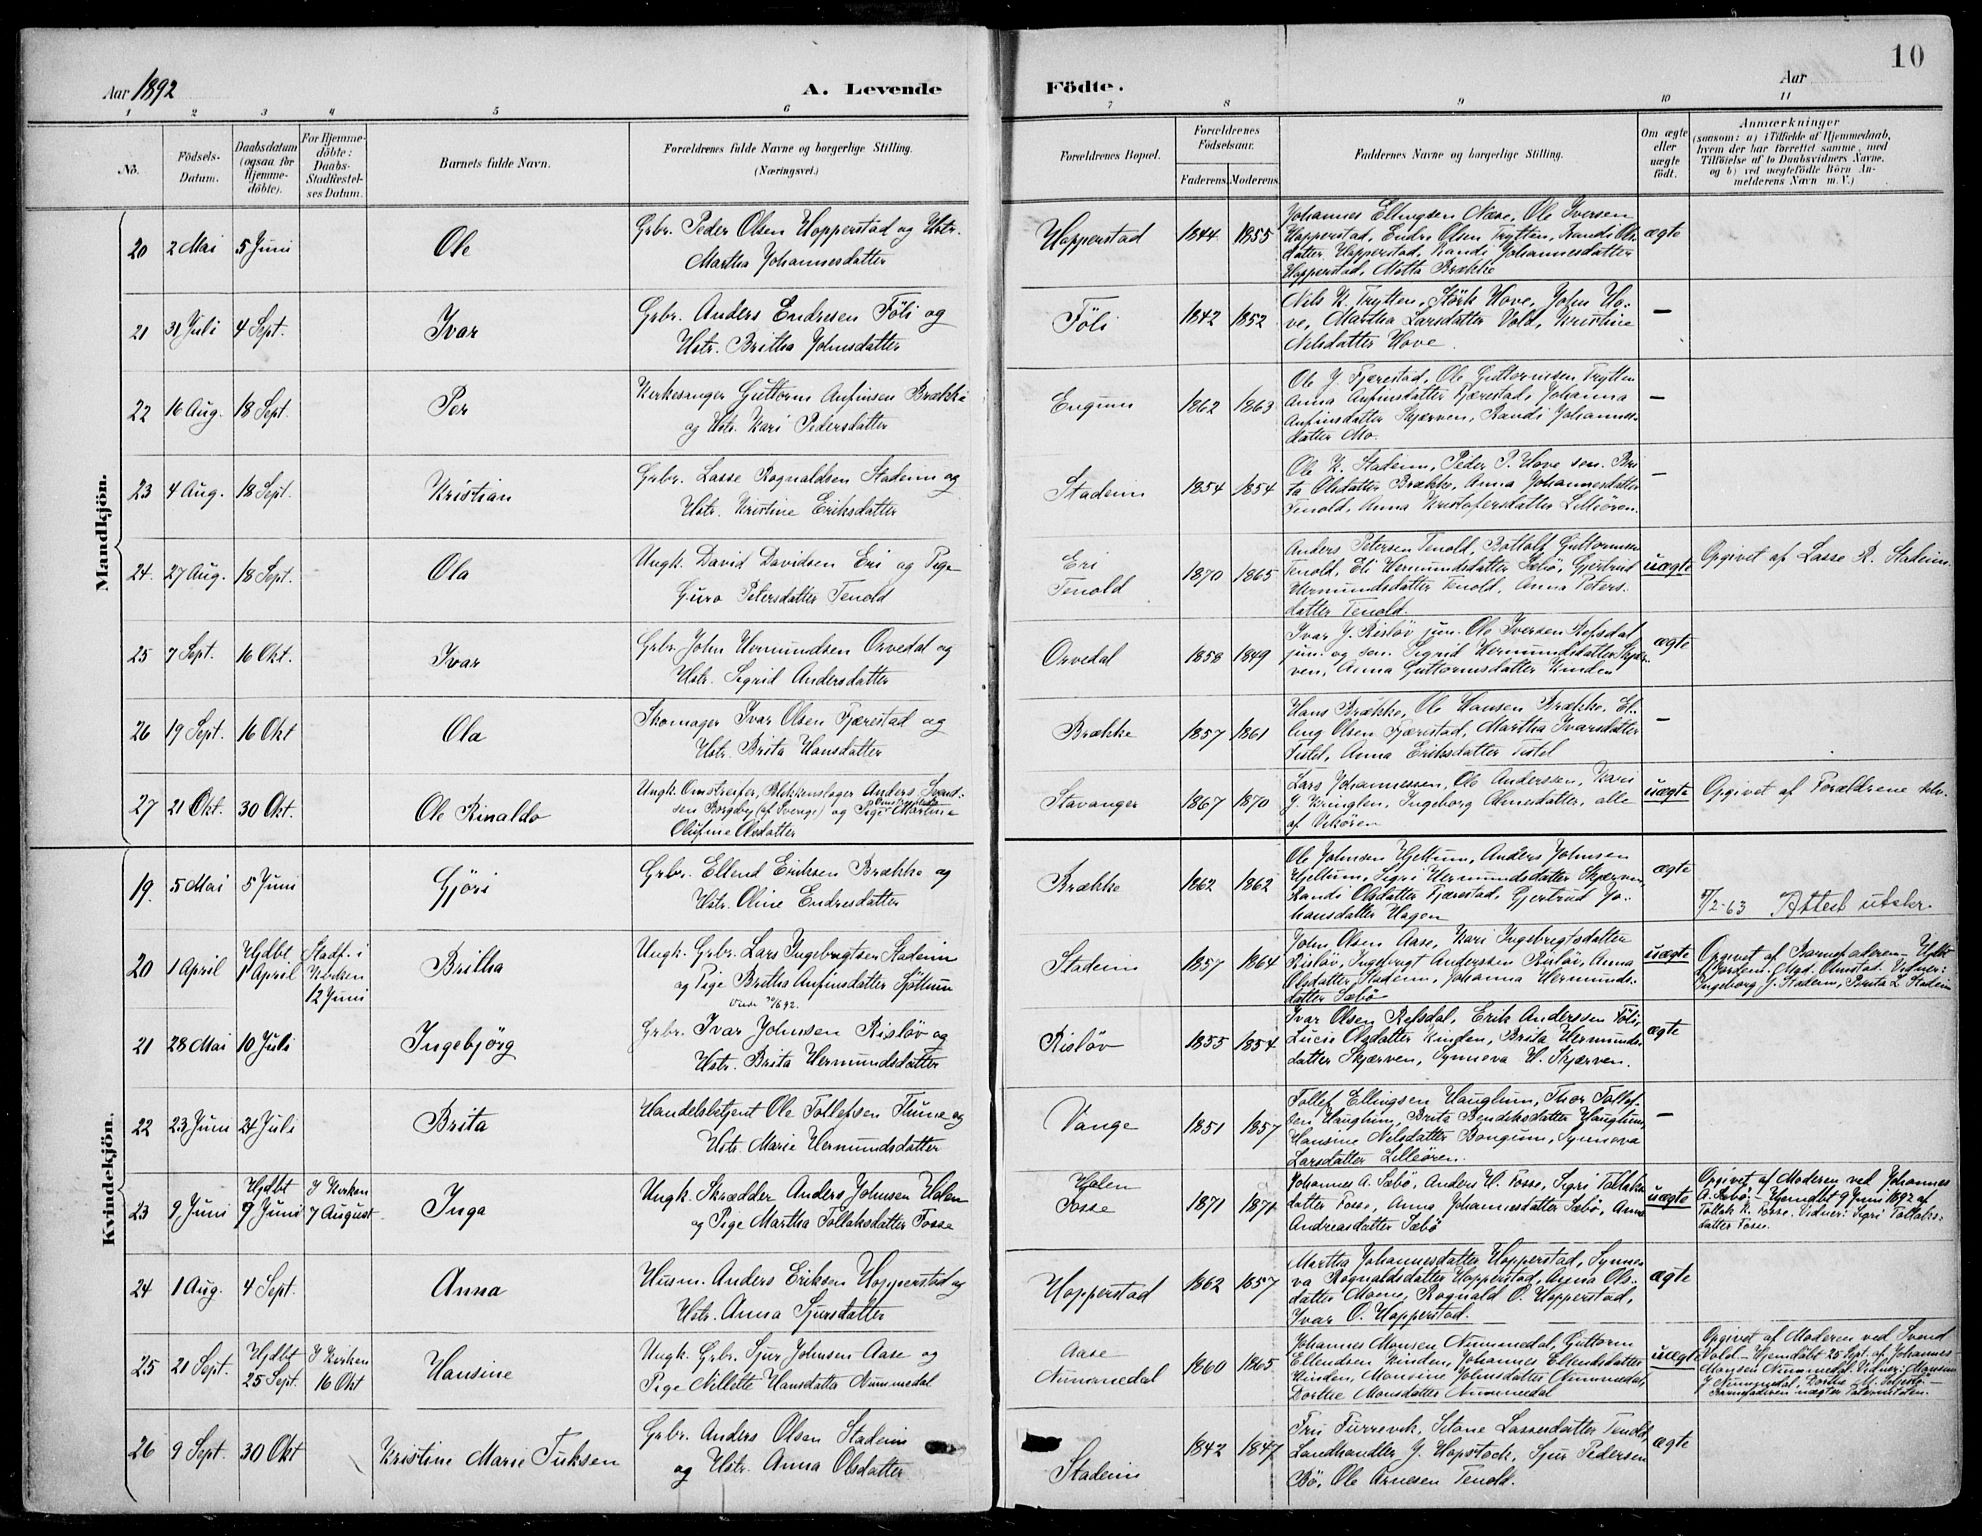 10
Aar 1892
A. Levende
Födte.
Aar
1 2 3 4 5 6 7 8 9 10 11
No.
Födsels-
Datum.
Daabsdatum
(ogsaa for
Hjemme-
döbte).
For Hjemme-
döbte:
Daabs-
Stadfæstel-
ses Datum.
Barnets fulde Navn.
Forældrenes fulde Navne og borgerlige Stilling.
(Næringsvei.)
Forældrenes Bopæl.
Forældrenes
Födselsaar.
Faderens. Moderens.
Faddernes Navne og borgerlige Stilling.
Om ægte
eller
uægte
födt.
Anmærkninger
(saasom: a) i Tilfælde af Hjemmedaab,
hvem der har forrettet samme, med
Tilföielse af to Daabsvidners Navne,
og b) ved uægtefödte Börn An-
melderens Navn m. V.)
Mandkjön.
20 2 Mai 5 Juni Ole
Grbr. Peder Olsen Hopperstad og Hstr.
Martha Johannesdatter
Hopperstad 1844 1855
Johannes Ellingsen Næse, Ole Iversen
Hopperstad, Endre Olsen Trytten, Randi Ols-
datter Hopperstad, Randi Johannesdatter
Hopperstad, Mitta Brække
ægte
21 31 Juli 4 Sept. Ivar
Grbr. Anders Endresen Föli og
Hstr. Britha Johnsdatter
Föli 1842 1852
Nils K. Trytten, Störk Hove, John Ho-
ve, Martha Larsdatter Vold, Kristine
Nilsdatter Hove.
—
22 16 Aug. 18 Sept. Per
Kirkesanger Guttorm Anfinsen Brække
og Hstr. Kari Pedersdatter
Engum 1862 1863
Ole J. Fjærestad, Ole Guttormsen Trytten
Anna Anfinsdatter Fjærestad, Johanna
Anfinsdatter Skjærven, Randi Johannes-
datter Mo.
—
23 4 Aug. 18 Sept. Kristian
Grbr. Lasse Rognaldsen Stadeim og
Hstr. Kristine Eriksdatter
Stadeim 1854 1854
Ole K. Stadeim, Peder P. Hove sen. Bri-
ta Olsdatter Brække, Anna Johannesdatter
Tenold, Anna Kristofersdatter Lilleören.
—
24. 27 Aug. 18 Sept. Ola
Ungk. David Davidsen Eri og Pige
Guro Petersdatter Tenold
Eri
Tenold 1870 1865
Anders Petersen Tenold, Bottolf Guttormsen
Tenold, Eli Hermundsdatter Sæbö, Gjertrud
Hermundsdatter Tenold, Anna Peters-
datter Tenold.
uægte
Opgivet af Lasse R. Stadeim.
25 7 Sept. 16 Okt. Ivar
Grbr. John Hermundsen Orvedal og
Hstr. Sigrid Andersdatter
Orvedal 1858 1849
Ivar J. Rislöv jun. Ole Iversen Refsdal
jun. og sen. Sigrid Hermundsdatter Skjær-
ven, Anna Guttormsdatter Kinden
ægte
26 19 Sept. 16 Okt Ola
Skomager Ivar Olsen Fjærestad og
Hstr. Brita Hansdatter
Brække 1857 1861
Hans Brække, Ole Hansen Brække, El-
ling Olsen Fjærestad, Martha Ivarsdatter
Tistel, Anna Eriksdatter Tistel
—
27 21 Okt. 30 Okt. Ole Rinaldo
Ungk. Omstreifer, Blikkenslager Anders Svend-
sen Borgsby (af Sverige) og Pige Martine
Olufine Olsdatter
Stavanger 1867 1870
Lars Johannessen, Ole Anderssen, Kari
J. Kringlen, Ingeborg Arnesdatter, alle
af Vikören
uægte
Opgivet af Forældrene selv.
Kvindekjön.
19. 5 Mai 5 Juni Gjöri
Grbr. Ellend Eriksen Brække og
Hstr. Oline Endresdatter
Brække 1862 1862
Ole Johnsen Hjellum, Anders Johnsen
Hjellum, Sigri Hermundsdatter Skjærven,
Randi Olsdatter Fjærestad, Gjertrud Jo-
hansdatter Hagen
ægte
7/2-63 Attest utskr.
20 1 April Hjdbt 1 April Stadf. i
Kirken
12 Juni Britha
Ungk. Grbr. Lars Ingebrigtsen Stadeim
og Pige Britha Anfinsdatter Sjöttun
Stadeim 1857 1864
John Olsen Aase, Kari Ingebrigtsdatter
Rislöv, Ingebrigt Anderssen Rislöv, Anna
Olsdatter Stadeim, Johanna Hermunds-
datter Sæbö
uægte
Opgivet af Barnefaderen – Hjdbt
af Jordem. Mgd. Olmstad. Vidner:
Ingeborg J. Stadeim, Brita L Stadeim
21 28 Mai 10 Juli Ingebjörg
Grbr. Ivar Johnsen Rislöv og
Hstr. Brita Hermundsdatter
Rislöv 1855 1854
Ivar Olsen Refsdal, Erik Anderssen Föli,
Lucie Olsdatter Kinden, Brita Hermunds-
datter Skjærven, Synneva H. Skjærven.
ægte
22 23 Juni 24 Juli Brita
Handelsbetjent Ole Tollefsen Thune og
Hstr. Marie Hermundsdatter
Vange 1851 1857
Tollef Ellingsen Hauglum, Thor Tollef-
sen Hauglum, Brita Bendiksdatter Hauglum,
Hansine Nilsdatter Bongum, Synneva
Larsdatter Lilleören.
—
23 9 Juni Hjdbt
9 Juni I Kirken
7 August Inga
Ungk. Skrædder Anders Johnsen Holen
og Pige Martha Tollaksdatter Fosse
Holen
Fosse 1871 1871
Johannes A. Sæbö, Anders H. Fosse, Sigri Tollaks-
datter Fosse, Anna Johannesdatter Sæbö, Anna
Andreasdatter Sæbö
uægte
Opgivet af Moderen ved Johannes
A. Sæbö – Hjemdöbt 9 Juni 1892 af
Tollak K. Fosse. Vidner: Sigri Tollaks-
datter Fosse.
24 1 Aug. 4 Sept. Anna
Husm. Anders Eriksen Hopperstad og
Hstr. Anna Sjursdatter
Hopperstad 1862 1857
Martha Johannesdatter Hopperstad, Synne-
va Rognaldsdatter Hopperstad, Anna Ols-
datter Moene, Rognald O. Hopperstad,
Ivar O. Hopperstad.
ægte
25 21 Sept. Hjdbt
25 Sept. I Kirken
16 Okt Hansine
Ungk. Grbr. Sjur Johnsen Aase og
Pige Nillette Hansdatter Nummedal
Aase
Nummedal 1860 1865
Johannes Monsen Nummedal, Guttorm
Ellendsen Kinden, Johannes Ellendsdatter
Kinden, Monsine Johnsdatter Nummedal,
Dorthe Monsdatter Nummedal
uægte
Opgivet af Moderen ved Svend
Vold – Hjemdöbt 25 Sept. af Johannes
Monsen Nummedal. Vidner: Monsine
J. Nummedal, Dorthe M.
Barnefaderen nægter Paterniteten.
26 9 Sept. 30 Okt Kristine Marie Tuksen
Grbr. Anders Olsen Stadeim
og Hstr. Anna Olsdatter
Stadeim 1842 1847
Fru Furrevik, Sitane Lassesdatter Tenold,
Landhandler J. Hopstock, Sjur Pedersen
Bö, Ole Arnesen Tenold.
ægte